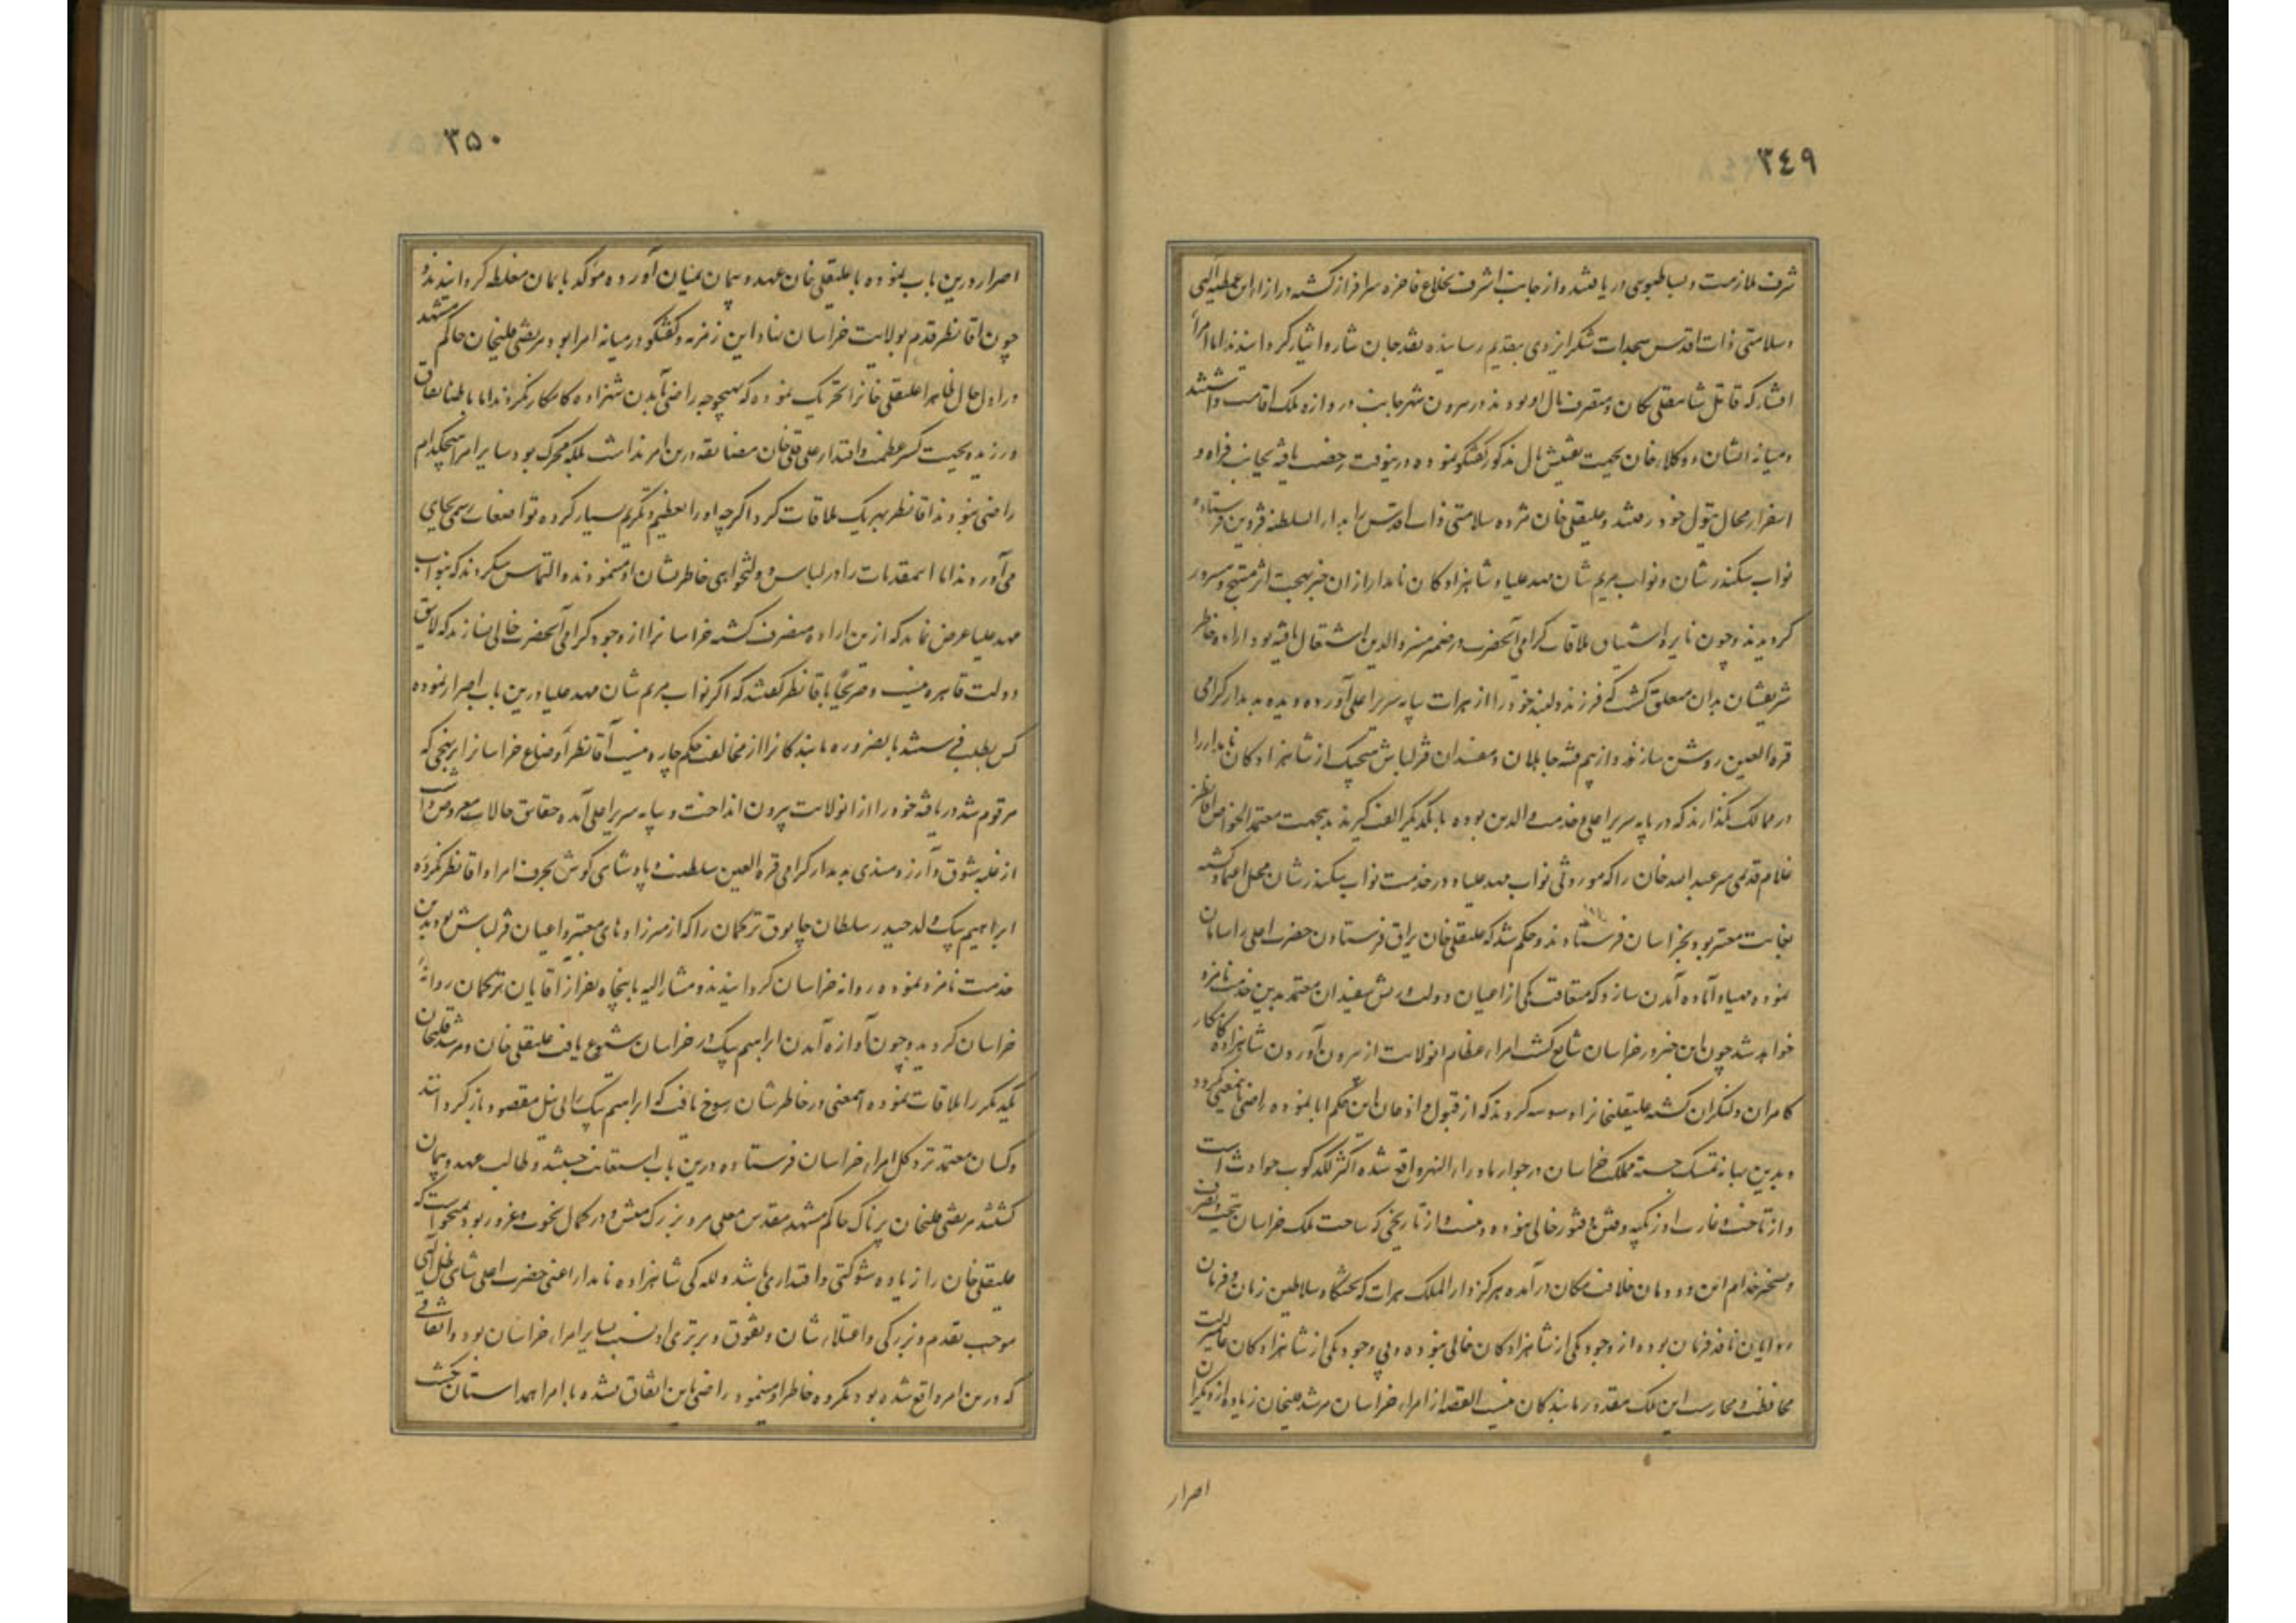 ۳۴۹
شرف ملازمت و بساطبوسی دریافتند و از جانب اشرف بخلاع فاخره سرافراز گشته در ازاء این عطیه الهی
و سلامتی ذات اقدس سجدات شکر ایزدی بتقدیم رسانیده نقد جان نثار و ایثار گردانیدند اما امراء
افشار که قاتل شاهقلی و متصرف مال او بودند در بیرون شهر جانب دروازه ملک اقامت داشتند
و میانه ایشان و وکلاء خان بجهت تفتیش مال مذکور گفتگو نموده درینوقت رخصت یافته بجانب فراه و
اسفزار محال تیول خود رفتند و علیقلی خان مژده سلامتی ذات اقدس را بدار السلطنه قزوین فرستاده
نواب سکندرشان و نواب مریم شان مهد علیا و شاهزادکان نامدار ازان خبر بهجت اثر مبتهج و مسرور
گردیدند و چون نایره اشتیاق ملاقات گرامی آنحضرت در ضمیر منیر والدین اشتعال یافته بود اراده خاطر
شریفشان بدان متعلق گشت که فرزند دلبند خود را از هرات بپایه سریر اعلی آورده دیده بدیدار گرامی
قرة العین روشن سازند و از بیم فتنه جاهلان و مفسدان قزلباش هیچیک از شاهزادکان نامدار را
در ممالک نگذارند که در پایه سریر اعلی و خدمت والدین بوده با یکدیگر الفت گیرند بدینجهت معتمد الخواص آقانظر
غلام قدیمی میر عبدالله خان را که موروثی نواب مهد علیا و در خدمت نواب سکندرشان محل اعتماد گشته
بغایت معتبر بود بخراسان فرستادند و حکم شد که علیقلی خان یراق فرستادن حضرت اعلی را سامان
نموده مهیا و آماده آمدن سازد که متعاقب یکی از اعیان دولت و ریش سفیدان معتمد بدین خدمت نامزد
خواهد شد چون این خبر در خراسان شایع گشت امراء عظام انولایت از بیرون آوردن شاهزاده کامکار
کامران دلنگران گشته علیقلیخانرا وسوسه کردند که از قبول و اذعان این حکم ابا نموده راضی باینمعنی نگردد
و بدین بهانه تمسک جسته مملکت خراسان در جوار ماوراء النهر واقع شده اکثر لگدکوب حوادث است
و از تاخت و غارت اوزبکیه وقوع فتور خالی نبوده و نیست و از تاریخی که ساحت ملک خراسان بتحت تصرف
و تسخیر خدام این دودمان خلافت مکان درآمده هرگز دار الملک هرات که تختگاه سلاطین زمان و فرمان
روایان نافذ فرمان بوده از وجود یکی از شاهزادکان خالی نبوده و بی وجود یکی از شاهزادکان عالیمرتبت
محافظت و محارست این ملک مقدور ما بندکان نیست القصه از امراء خراسان مرشد قلیخان زیاده از دیگران
اصرار
۳۵۰
اصرار درین باب نموده با علیقلی خان عهد و پیمان بمیان آورده مؤکد بایمان مغلظه گردانیدند و
چون آقانظر قدم بولایت خراسان نهاد این زمزمه و گفتگو در میانه امرا بود مرتضی قلیخان حاکم مشهد
در اول حال ظاهرا علیقلی خانرا تحریک نموده که بهیچوجه راضی آمدن شهزاده کامکار نگردند اما باطنا نفاق
ورزیده بجهت کسر عظمت و اقتدار علی قلی خان مضایقه درین امر نداشت بلکه محرک بود سایر امرا هیچکدام
راضی نبودند آقانظر بهر یک ملاقات کرد اگرچه او را تعظیم و تکریم بسیار کرده تواضعات رسمی بجای
می آوردند اما این مقدمات را در لباس دولتخواهی خاطرنشان او مینمودند و التماس میکردند که بنواب
مهد علیا عرض نماید که از ین اراده منصرف گشته خراسانرا از وجود گرامی آنحضرت خالی نسازند که لایق
دولت قاهره نیست و صریحا باقانظر گفتند که اگر نواب مریم شان مهد علیا درین باب اصرار نموده
کس بطلب فرستند بالضروره ما بندکانرا از مخالفت حکم چاره نیست آقانظر اوضاع خراسانرا بنهجی که
مرقوم شد دریافته خود را از انولایت بیرون انداخت و بپایه سریر اعلی آمده حقایق حالات معروض داشت
از غلبه شوق و آرزومندی بدیدار گرامی قرة العین سلطنت و پادشاهی گوش بحرف امرا و آقانظر نکرده
ابراهیم بیک ولد حیدر سلطان چابوق ترکمان را که از میرزادهای معتبر و اعیان قزلباش بود بدین
خدمت نامزد نموده روانه خراسان گردانیدند و مشار الیه با پنجاه نفر از آقایان ترکمان روانه
خراسان گردید و چون آوازه آمدن ابراهیم بیک در خراسان شیوع یافت علیقلی خان و مرشد قلیخان
یکدیگر را ملاقات نموده اینمعنی در خاطرشان رسوخ یافت که ابراهیم بیک را بی نیل مقصود باز گردانند
و کسان معتمد نزد کل امراء خراسان فرستاده درین باب استعانت جستند و طالب عهد و پیمان
گشتند مرتضی قلیخان پرناک حاکم مشهد مقدس معلی مرد بزرگ منش و در کمال نخوت و غرور بود نمیخواست که
علیقلی خان را زیاده شوکتی و اقتداری باشد و للـه کی شاهزاده نامدار اعنی حضرت اعلی شاهی ظل الهی
موجب تقدم و بزرگی و اعتلاء شان و تفوق و برتری او نسبت بسایر امراء خراسان بود و اتفاقی
که درین امر واقع شده بود مکروه خاطر او مینمود راضی باین اتفاق نشده با امرا همداستان نگشت